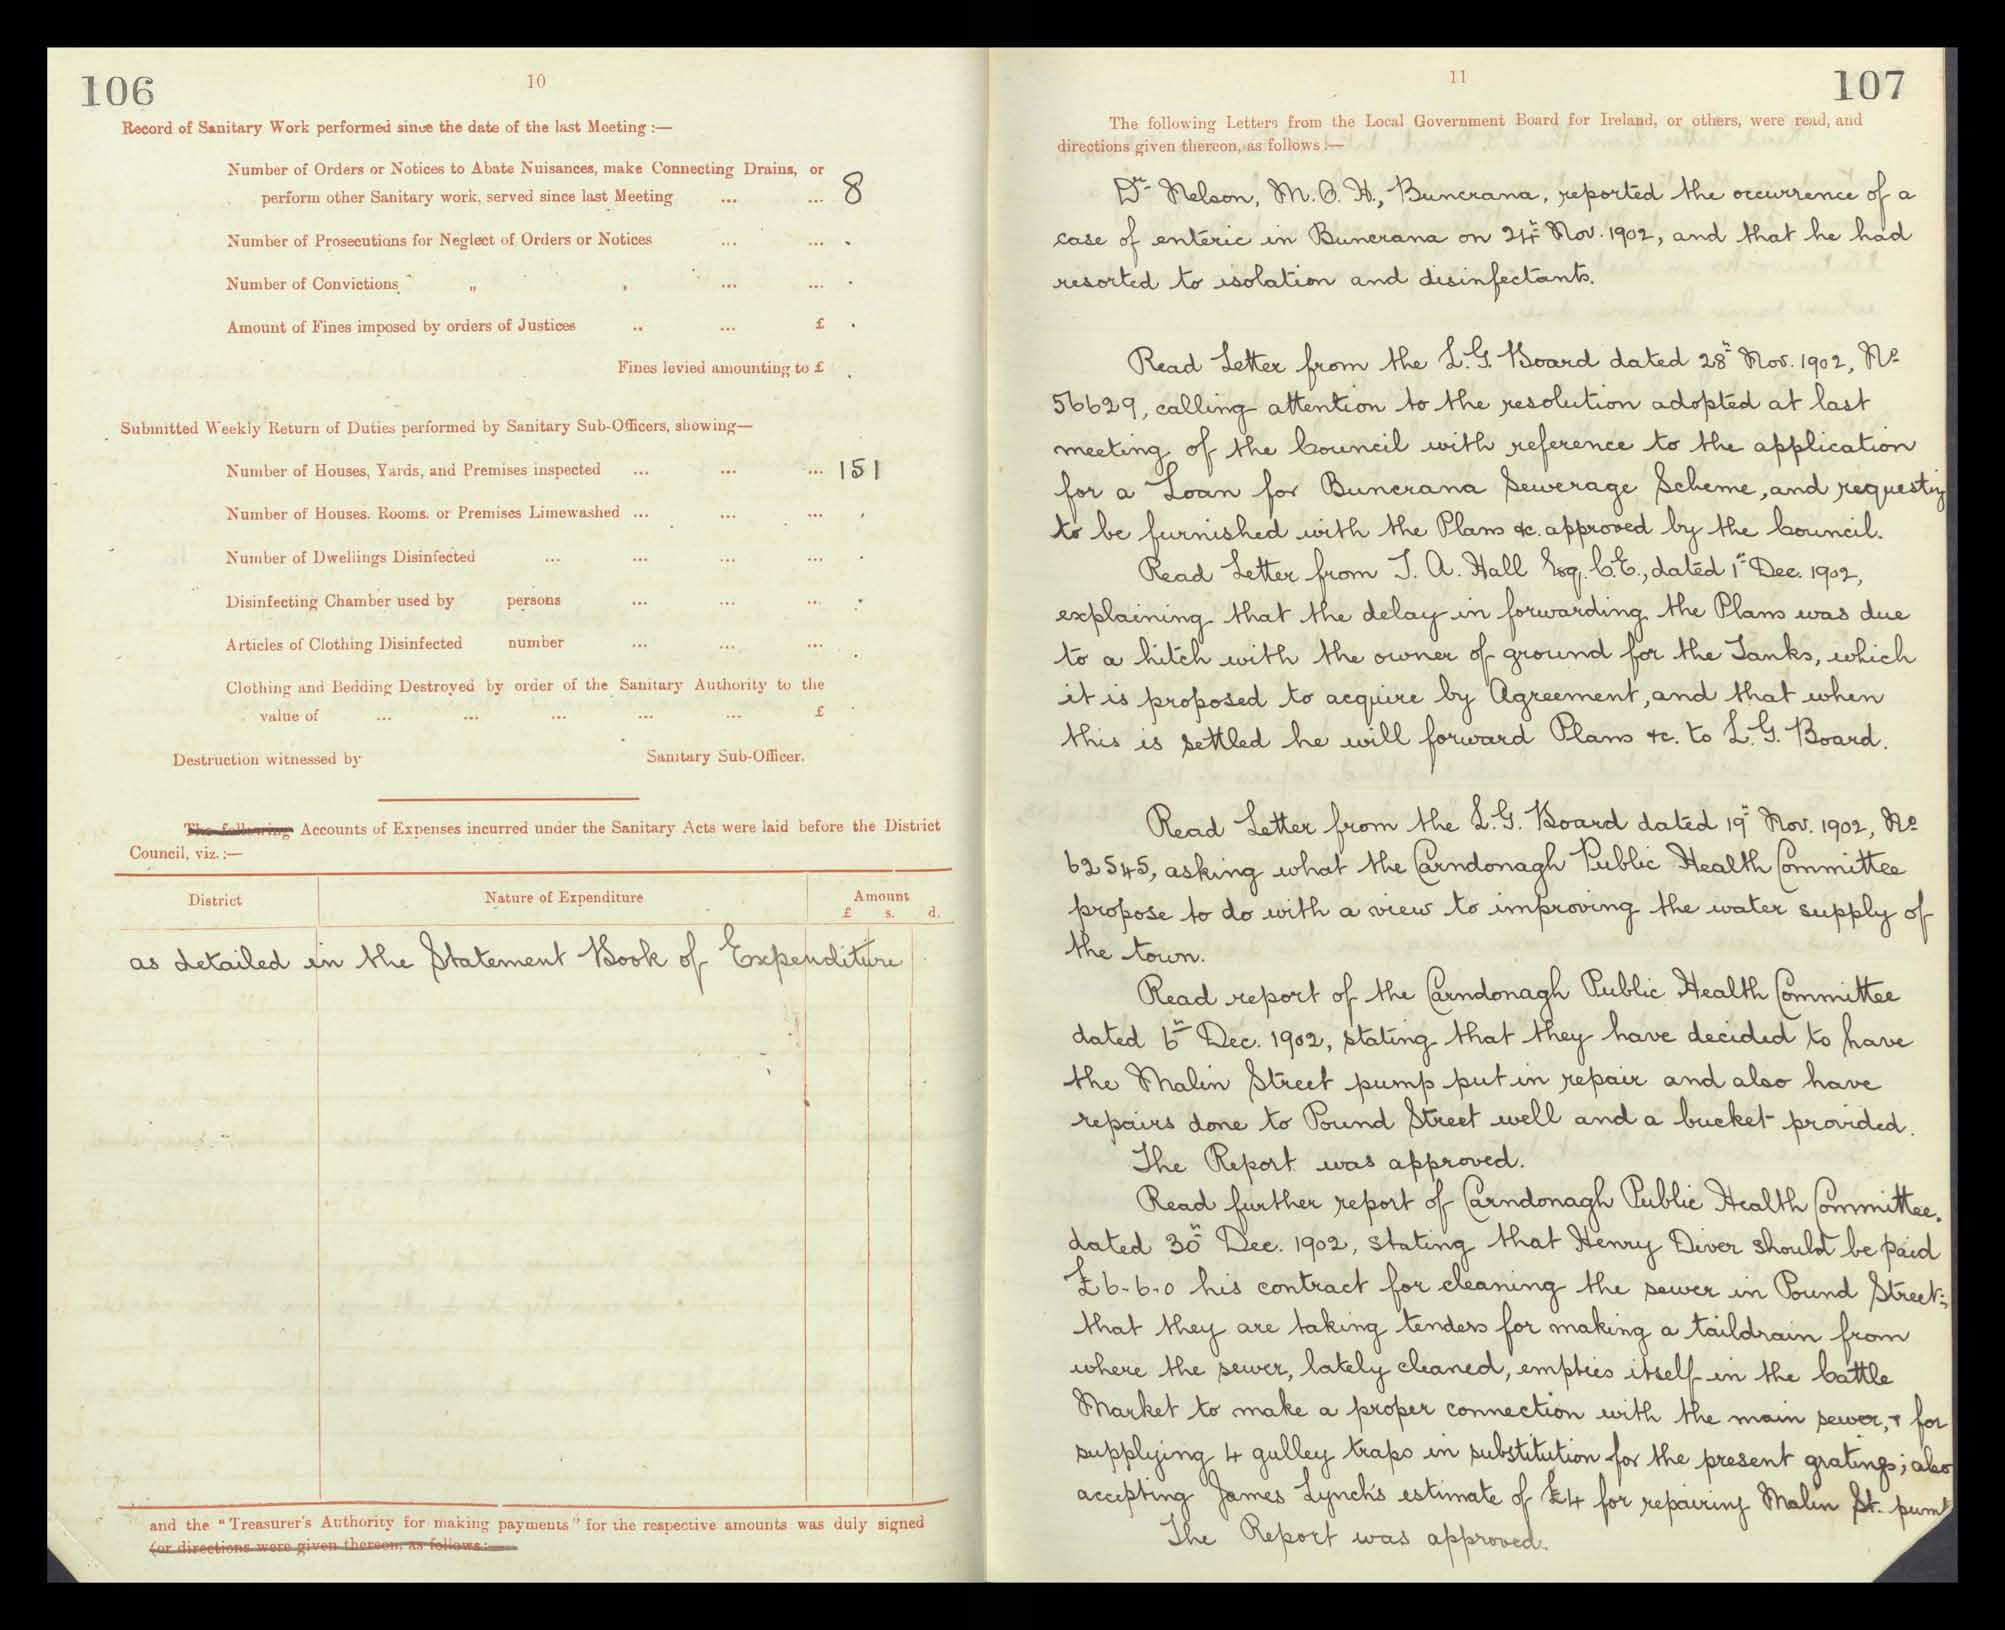 106
10
Record of Sanitary Work performed since the date of the last Meeting :—
Number of Orders or Notices to Abate Nuisances, make Connecting Drains, or
perform other Sanitary work, served since last Meeting ... ... 8
Number of Prosecutions for Neglect of Orders or Notices ... ... .
Number of Convictions „ , ... ... .
Amount of Fines imposed by orders of Justices .. ... £ .
Fines levied amounting to £ .
Submitted Weekly Return of Duties performed by Sanitary Sub-Officers, showing—
Number of Houses, Yards, and Premises inspected ... ... ... 151
Number of Houses. Rooms. or Premises Limewashed ... ... ... .
Number of Dwellings Disinfected ... ... ... ... .
Disinfecting Chamber used by persons ... ... ... .
Articles of Clothing Disinfected number ... ... ... .
Clothing and Bedding Destroyed by order of the Sanitary Authority to the
value of ... ... ... ... ... £ .
Destruction witnessed by Sanitary Sub-Officer.
The following Accounts of Expenses incurred under the Sanitary Acts were laid before the District
Council, viz.:—
District Nature of Expenditure Amount
£ s. d.
as detailed in the Statement Book of Expenditure
and the "Treasurer's Authority for making payments" for the respective amounts was duly signed
(or directions were given thereon, as follows:—
11
107
The following Letters from the Local Government Board for Ireland, or others, were read, and
directions given thereon, as follows :—
Dr Nelson, M.O.H., Buncrana, reported the occurrence of a
case of enteric in Buncrana on 24th Nov. 1902, and that he had
resorted to isolation and disinfectants.
Read Letter from the L.G. Board dated 28th Nov. 1902, No
56629, calling attention to the resolution adopted at last
meeting of the Council with reference to the application
for a Loan for Buncrana Sewerage Scheme, and requesting
to be furnished with the Plans &c. approved by the Council.
Read Letter from J. A. Hall Esq. C.E., dated 1st Dec. 1902,
explaining that the delay in forwarding the Plans was due
to a hitch with the owner of ground for the Tanks, which
it is proposed to acquire by Agreement, and that when
this is settled he will forward Plans &c. to L.G. Board.
Read Letter from the L.G. Board dated 19th Nov. 1902, No
62545, asking what the Carndonagh Public Health Committee
propose to do with a view to improving the water supply of
the town.
Read report of the Carndonagh Public Health Committee
dated 6th Dec. 1902, stating that they have decided to have
the Malin Street pump put in repair and also have
repairs done to Pound Street well and a bucket provided.
The Report was approved.
Read further report of Carndonagh Public Health Committee.
dated 30th Dec. 1902, stating that Henry Diver should be paid
£6-6-0 his contract for cleaning the sewer in Pound Street;
that they are taking tenders for making a taildrain from
where the sewer, lately cleaned, empties itself in the Cattle
Market to make a proper connection with the main sewer, & for
supplying 4 gulley traps in substitution for the present gratings; also
accepting James Lynch's estimate of £4 for repairing Malin St. pump
The Report was approved.